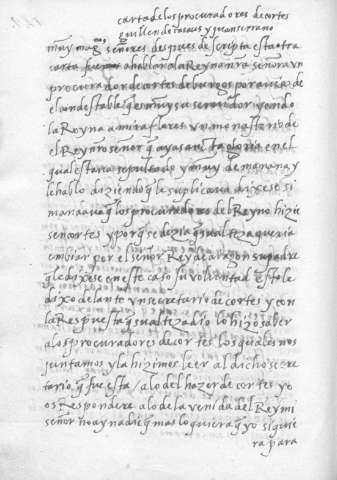 carta de los procuradores de cortes
guillen de casaus y juan serrano
muy mag. señores despues de scripta esta otra
carta fue a hablar a la Reyna nra señora vn
procurador de cortes de burgos por avia de
el condestable ques muy su servidor yendo
la Reyna a miraflores vn monasterio de
el Rey nro señor q aya santa gloria en el
qual estava sepultado y muy de mañana y
le hablo diziendo q le suplicava dixese si
mandava q los procuradores del Reyno hizie
sen cortes y porq se dezia q su alteza queria
embiar por el señor Rey de aragon su padre
q le dixese en este caso su voluntad esto le
dixo delante vn secretario de cortes y con
la Respuesta q su alteza dio lo hizo saber
a los procuradores de cortes los quales nos
juntamos y la hizimos leer al dicho secre
tario q fue esta / a lo del hazer de cortes yo
os Respondere a lo de la venida del Rey mi
señor no ay nadie q mas lo quiera q yo siquie
ra para